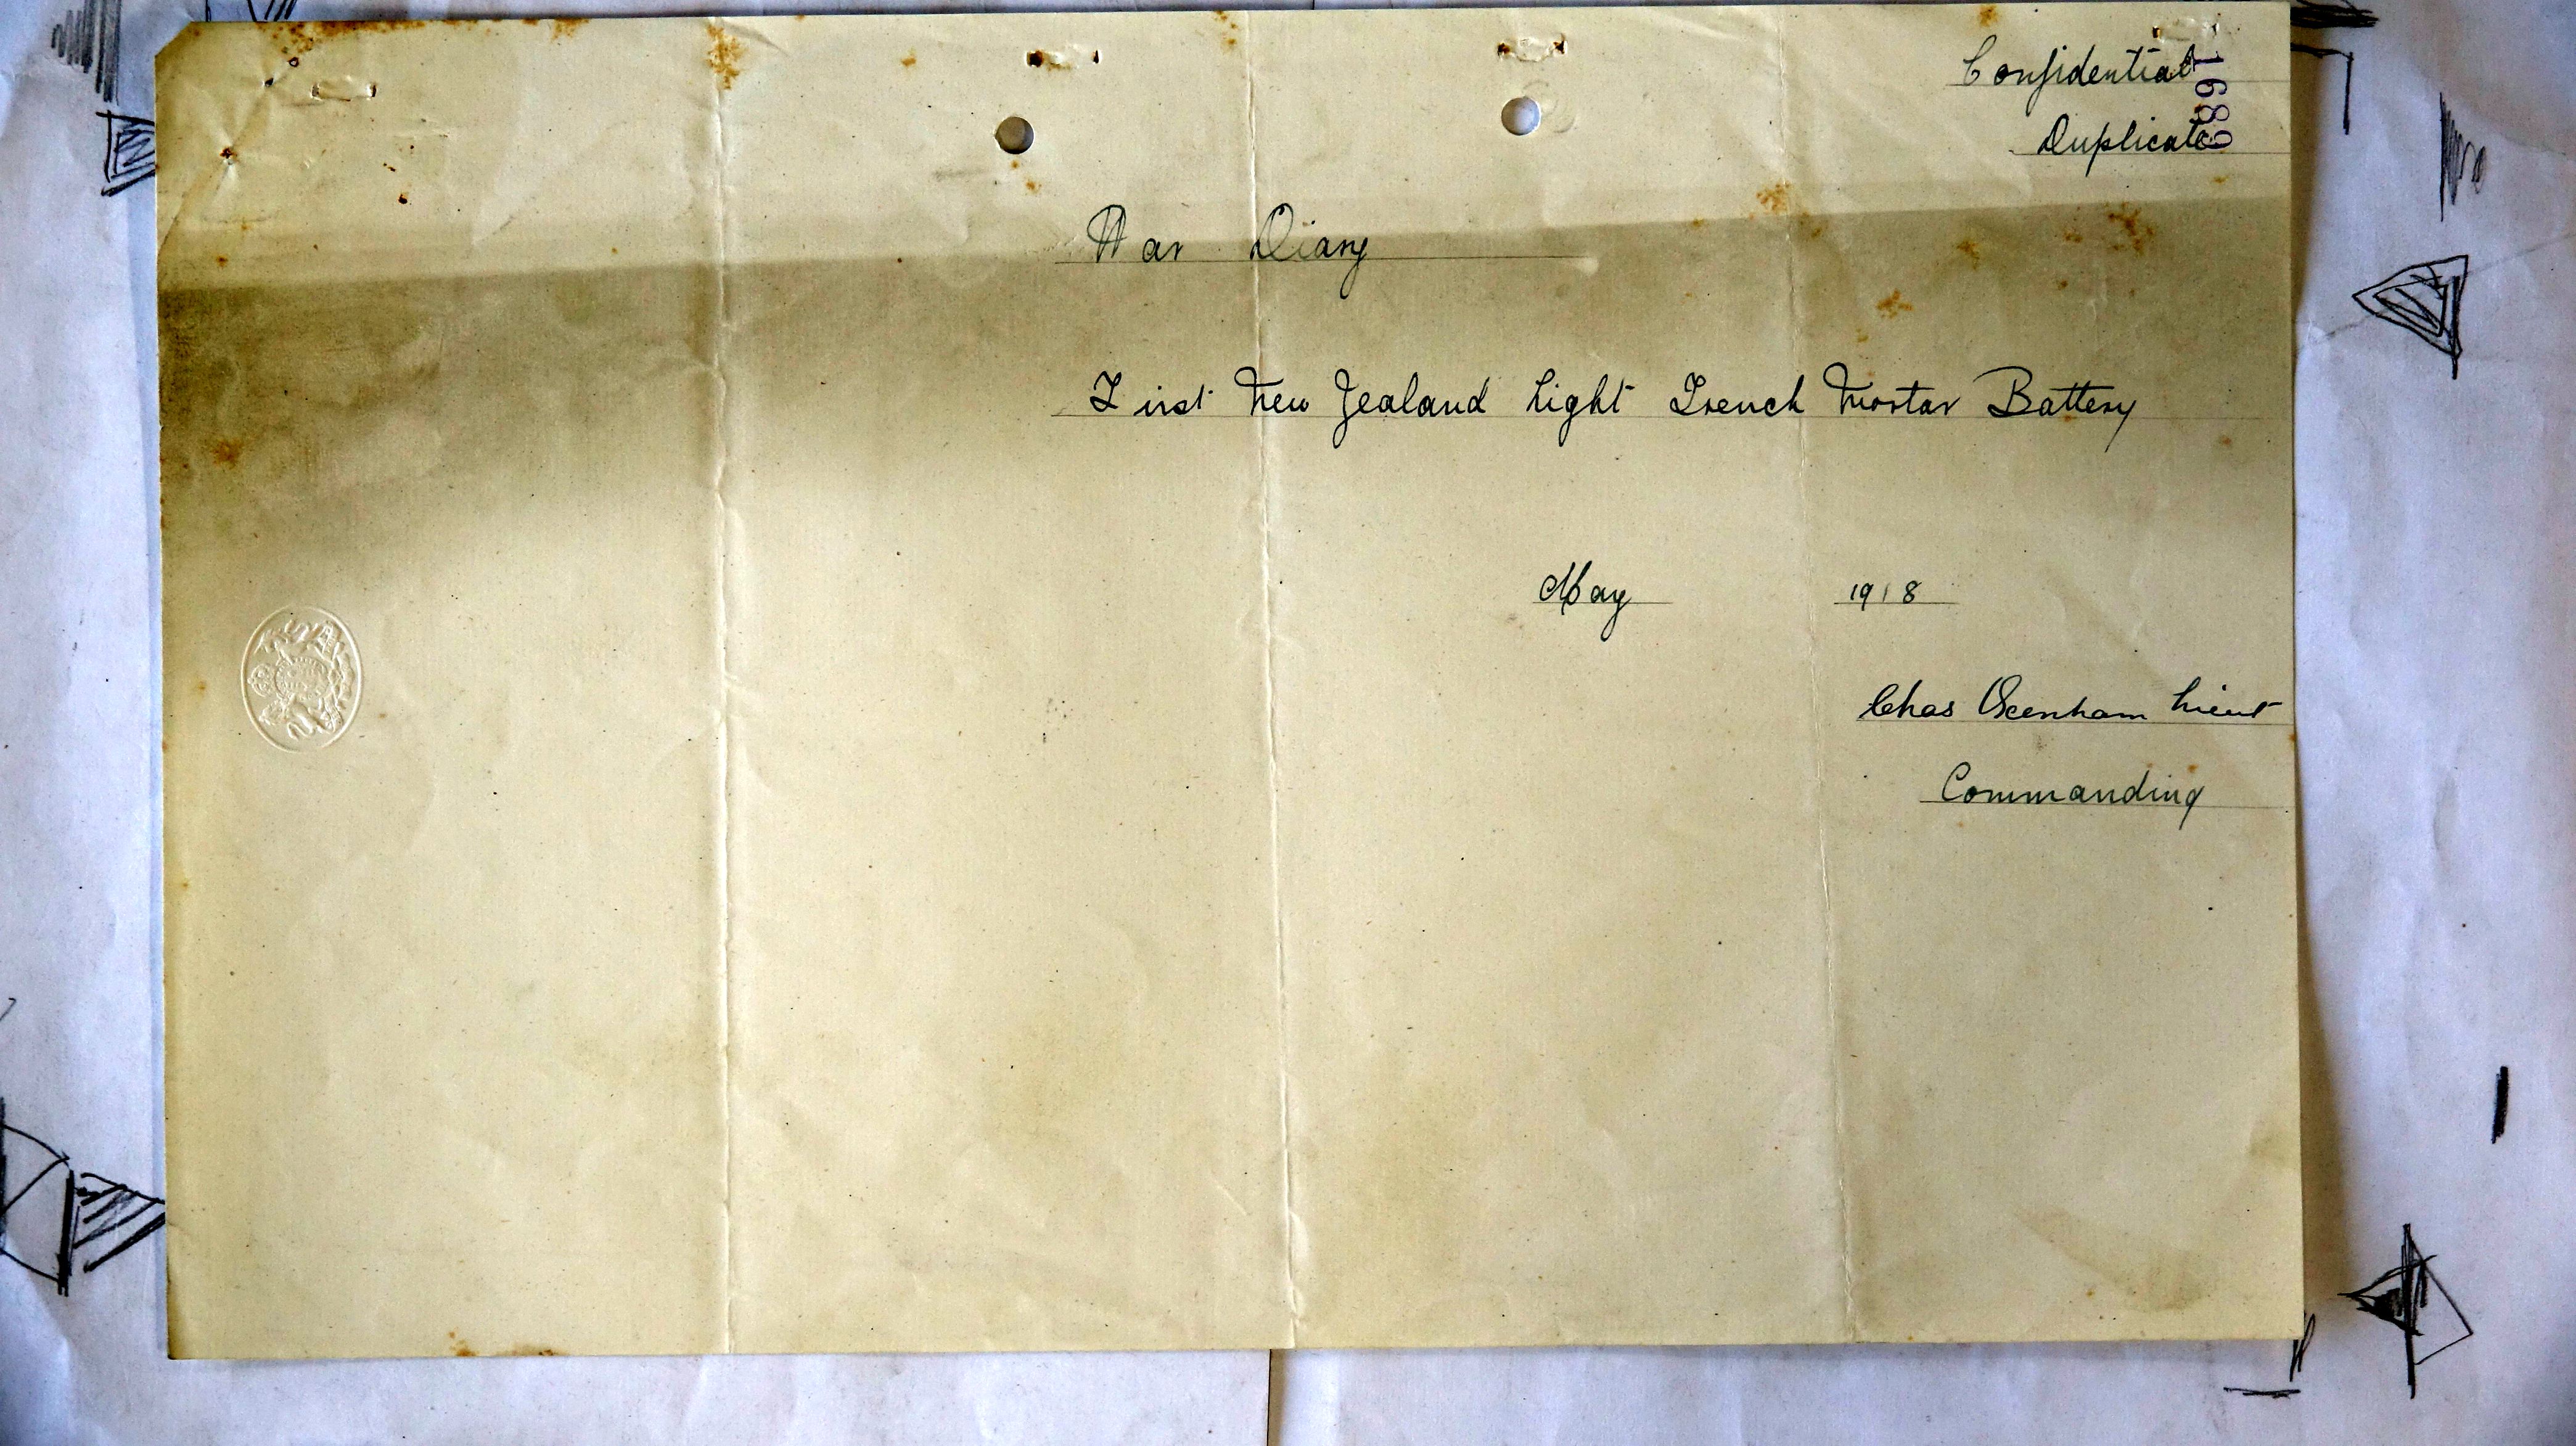 Confidential
1689
Duplicate
War Diary
First New Zealand Light Trench Mortar Battery
May 1918
Chas Oxenham Lieut
Commanding